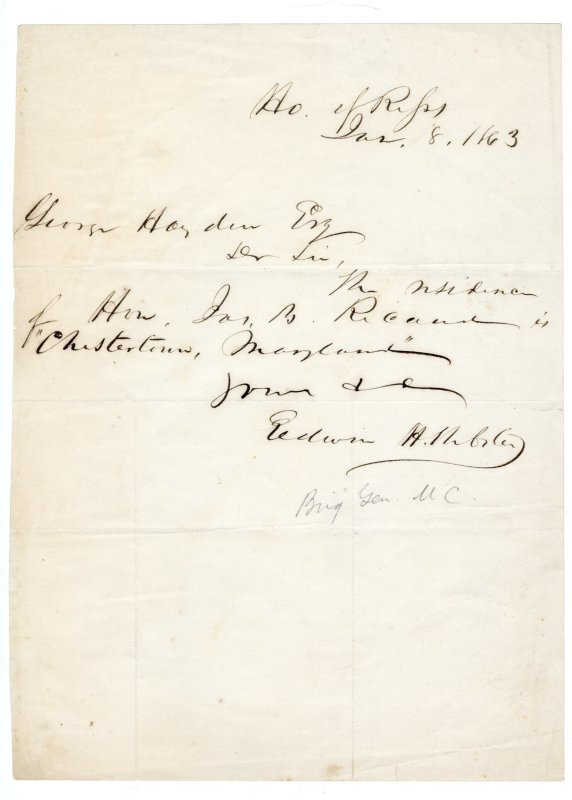 Ho. of Reps
Jan. 8. 1863
George Hayden Esq
Dr Sir,
The residence
of Hon. Jas. B. Ricaud is
"Chestertown, Maryland"
Yours &c
Edwin H. Webster
Brig Gen. M C.